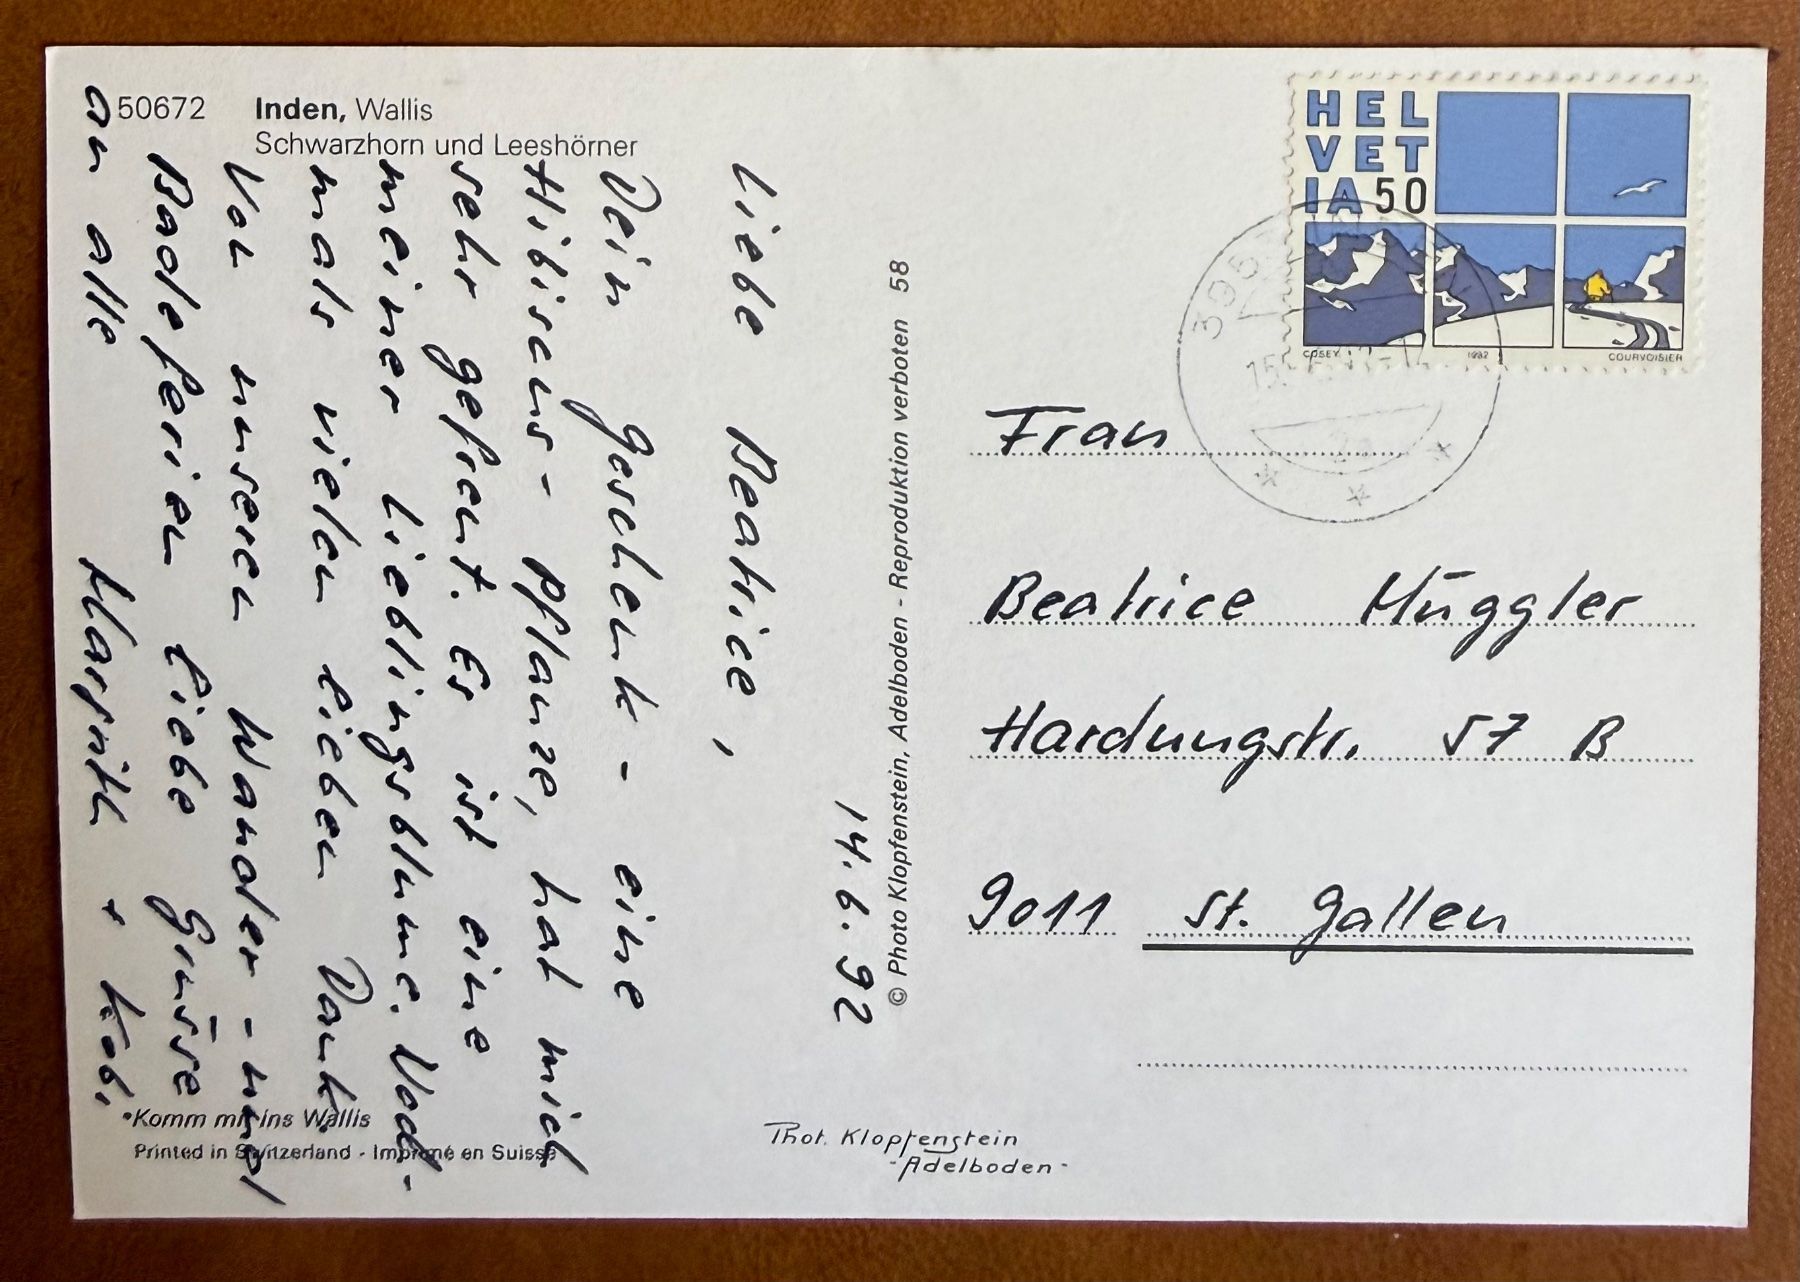 50672 Inden, Wallis
Schwarzhorn und Leeshörner
14.6.92
Liebe Beatrice,
Dein Geschenk - eine
Hibiscus-Pflanze, hat mich
sehr gefreut. Es ist eine
meiner Lieblingsblume. Noch-
mals vielen lieben Dank.
Von unseren Wander- und
Badeferien liebe Grüsse
an alle Margrith + Kobi
Komm mit ins Wallis
Printed in Switzerland - Imprimé en Suisse
© Photo Klopfenstein, Adelboden - Reproduktion verboten 58
Phot. Klopfenstein
-Adelboden-
HEL
VET
IA 50
COSEY 1992 COURVOISIER
Frau
Beatrice Müggler
Hardungstr. 57 B
9011 St. Gallen